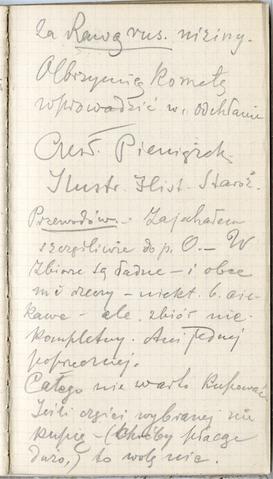 za Rawą rus. niziny.
Olbrzymią kometę
wprowadzić w otchłanie
Czesł. Pieniążek
Ilustr. Hist. Staroż.
Przewodów. - Zajechałem
szczęśliwie do p. O. - W
Zbiory są ładne - i obce
mi rzeczy - niekt. b. cie-
kawe - ale zbiór nie-
kompletny. Ani jednej
poprzedniej.
Całego nie warto kupować
Jeśli części wybranej nie
kupię - (choćby płacąc
dużo,) to wolę nic.